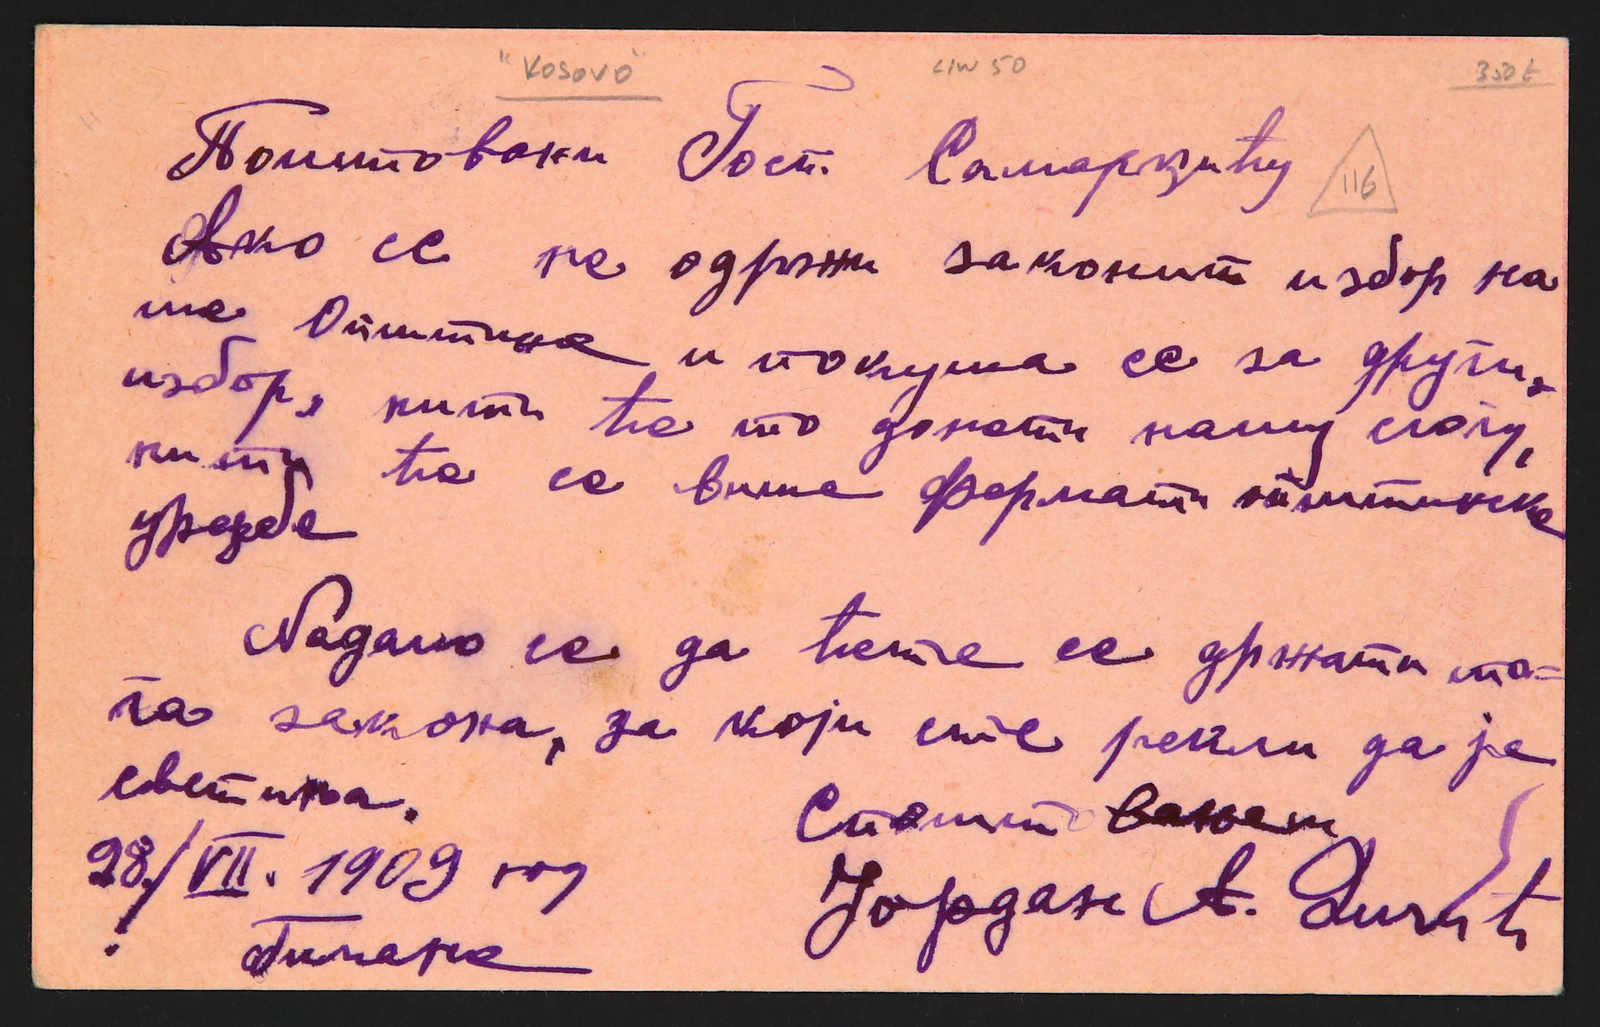 "KOSOVO"
350 €
Поштовани Госп. Самарџићу
116
Ако се не одржи законит избор на
ше Општине и покуша се за други
избор, нити ће то донети нашу слогу,
нити ће се више формати општинске
уредбе
Надамо се да ћете се држати то=
га закона, за који сте рекли да је
светиња.
С поштовањем
28/VII. 1909 год
Јордан А.
Гилане